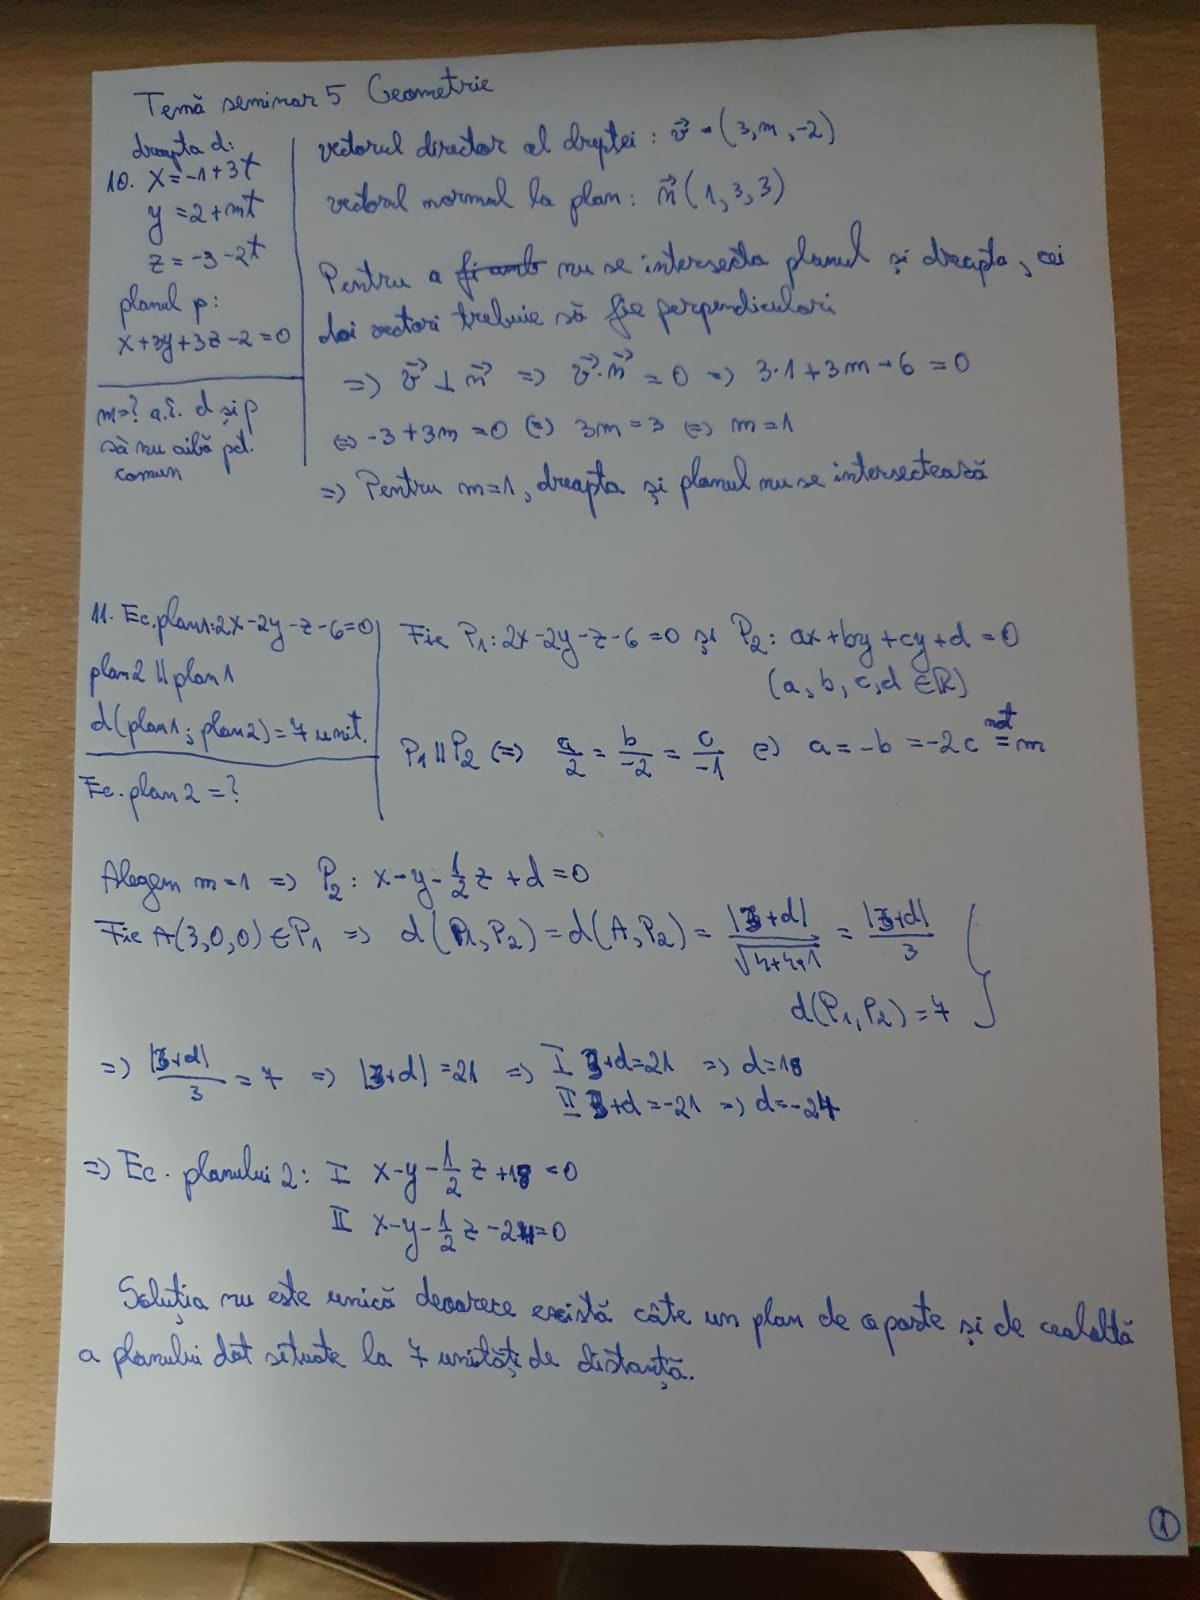 Temă seminar 5 Geometrie
dreapta d:
10. x=-1+3t
y=2+mt
z=-3-2t
planul p:
x+3y+3z-2=0
m=? a.î. d și p
să nu aibă pct.
comun
vectorul director al dreptei: v⃗ = (3,m,-2)
vectorul normal la plan: n⃗(1,3,3)
Pentru a nu se intersecta planul și dreapta, cei
doi vectori trebuie să fie perpendiculari
=> v⃗ ⊥ n⃗ => v⃗·n⃗ = 0 => 3·1+3m-6=0
<=> -3+3m=0 (=) 3m=3 <=> m=1
=> Pentru m=1, dreapta și planul nu se intersectează
11. Ec.plan1:2x-2y-z-6=0
plan2 || plan1
d(plan1; plan2)=7 unit.
Ec. plan 2 =?
Fie P₁:2x-2y-z-6=0 și P₂: ax+by+cy+d=0
(a,b,c,d ∈ℝ)
P₁ || P₂ (=) a/2 = b/-2 = c/-1 (=) a=-b=-2c not= m
Alegem m=1 => P₂: x-y-1/2 z+d=0
Fie A(3,0,0)∈P₁ => d(P₁,P₂)=d(A,P₂)= |3+d|/√4+4+1 = |3+d|/3
d(P₁,P₂)=7
=> |3+d|/3 = 7 => |3+d|=21 => I 3+d=21 => d=18
II 3+d=-21 => d=-24
=> Ec. planului 2: I x-y-1/2 z+18=0
II x-y-1/2 z-24=0
Soluția nu este unică deoarece există câte un plan de o parte și de cealaltă
a planului dat situate la 7 unități de distanță.
1